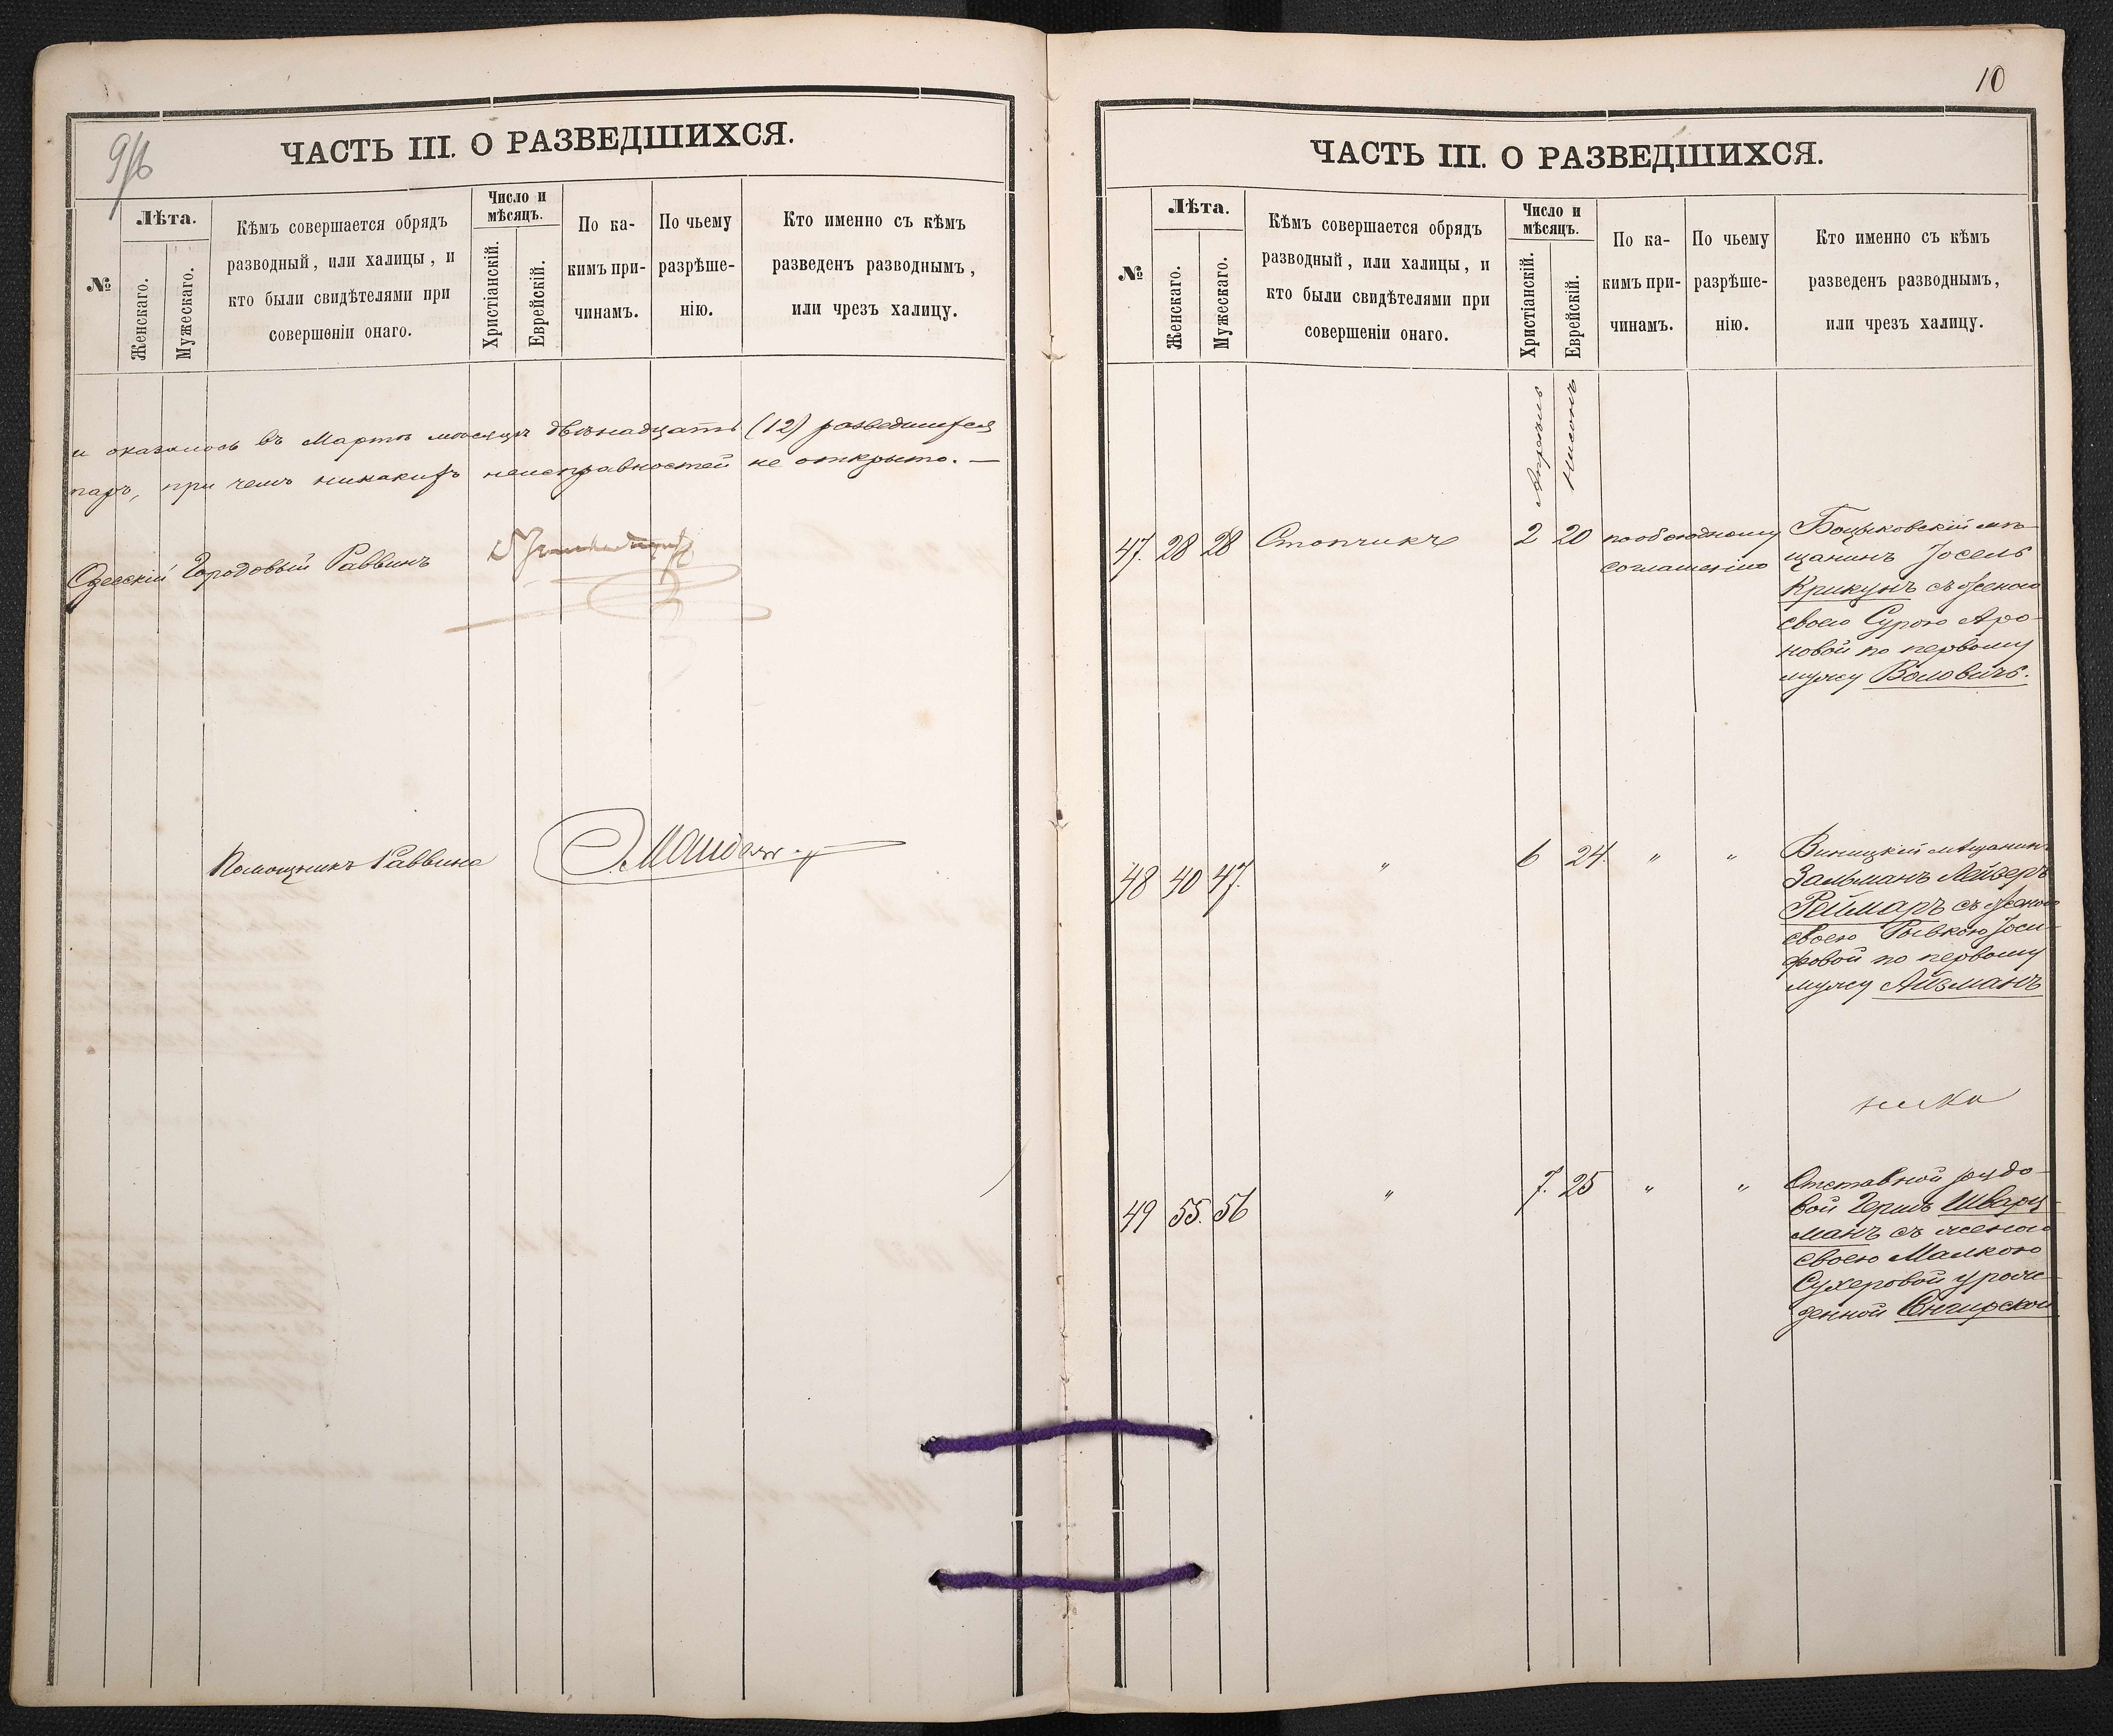 9/б
ЧАСТЬ III. О РАЗВЕДШИХСЯ.
№
Лѣта.
Женскаго.
Мужескаго.
Кѣмъ совершается обрядъ
разводный, или халицы, и
кто были свидѣтелями при
совершеніи онаго.
Число и
мѣсяцъ.
Христіанскій.
Еврейскій.
По ка-
кимъ при-
чинамъ.
По чьему
разрѣше-
нію.
Кто именно съ кѣмъ
разведенъ разводнымъ,
или чрезъ халицу.
и оказалось въ Мартѣ мѣсяцѣ двѣнадцать (12) разведшихся
паръ, при чемъ никакихъ неисправностей не открыто. —
Одесскій Городовый Раввинъ
Помощникъ Раввина
10
ЧАСТЬ III. О РАЗВЕДШИХСЯ.
№
Лѣта.
Женскаго.
Мужескаго.
Кѣмъ совершается обрядъ
разводный, или халицы, и
кто были свидѣтелями при
совершеніи онаго.
Число и
мѣсяцъ.
Христіанскій.
Еврейскій.
По ка-
кимъ при-
чинамъ.
По чьему
разрѣше-
нію.
Кто именно съ кѣмъ
разведенъ разводнымъ,
или чрезъ халицу.
Апрѣль
Нисонъ
47. 28 28 Стопчикъ 2 20 по обоюдному
соглашенію
мѣ-
щанинъ Іосель
Крикунъ съ женою
своею Сурою Аро-
новой по первому
мужу Воловичъ.
48 40 47. " 6 24 " "
Виницкій мѣщанинъ
Зальманъ Лейзеръ
Реймаръ съ женою
своею Рывкою Іоси-
фовой по первому
мужу Айзманъ
49 55. 56 " 7. 25 " "
Отставной рядо-
вой Гершъ Шварц-
манъ съ женою
своею Малкою
Сухеровой урож-
денной